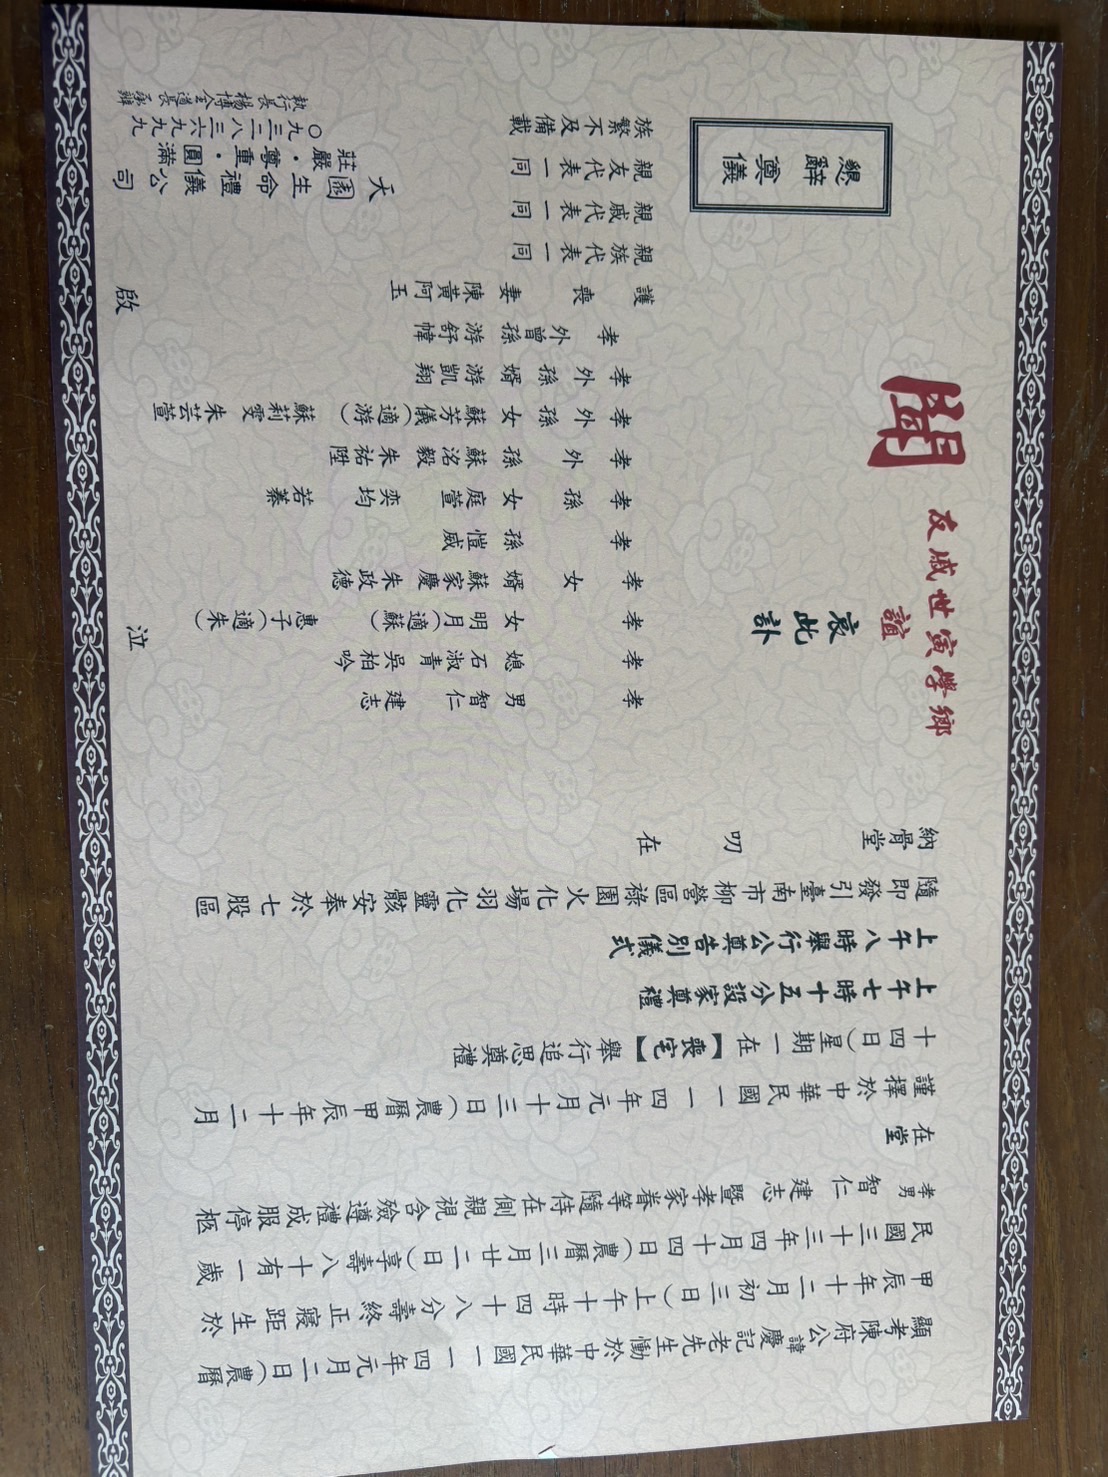 顯考陳府公諱慶記老先生慟於中華民國一一四年元月二日(農曆
甲辰年十二月初三日)上午十時四十八分壽終正寢距生於
民國三十三年四月十四日(農曆三月廿二日)享壽八十有一歲
孝男 智仁 建志 暨孝家眷等隨侍在側親視含殮遵禮成服停柩
在堂
謹擇於中華民國一一四年元月十三日(農曆甲辰年十二月
十四日)星期一在【喪宅】舉行追思奠禮
上午七時十五分設家奠禮
上午八時舉行公奠告別儀式
隨即發引臺南市柳營區祿園火化場羽化靈骸安奉於七股區
納骨堂 叨在
友戚世寅學鄉
誼
哀此訃
聞
孝男 智仁 建志
孝媳 石淑青 吳柏吟
孝女 明月(適蘇) 惠子(適朱)
孝女婿 蘇家慶 朱政德
孝孫 愷威
孝孫女 庭萱 奕均 若蓁
孝外孫 蘇洺毅 朱祐陞
孝外孫女 蘇芳儀(適游) 蘇莉雯 朱芸萱
孝外孫婿 游凱翔
孝外曾孫 游舒幃
護喪妻 陳黃阿玉
親族代表一同
親戚代表一同
親友代表一同
族繁不及備載
泣 啟
懇辭
奠儀
天園生命禮儀公司
莊嚴・尊重・圓滿
○九三二八三六九九九
執行長楊博全道長承辦